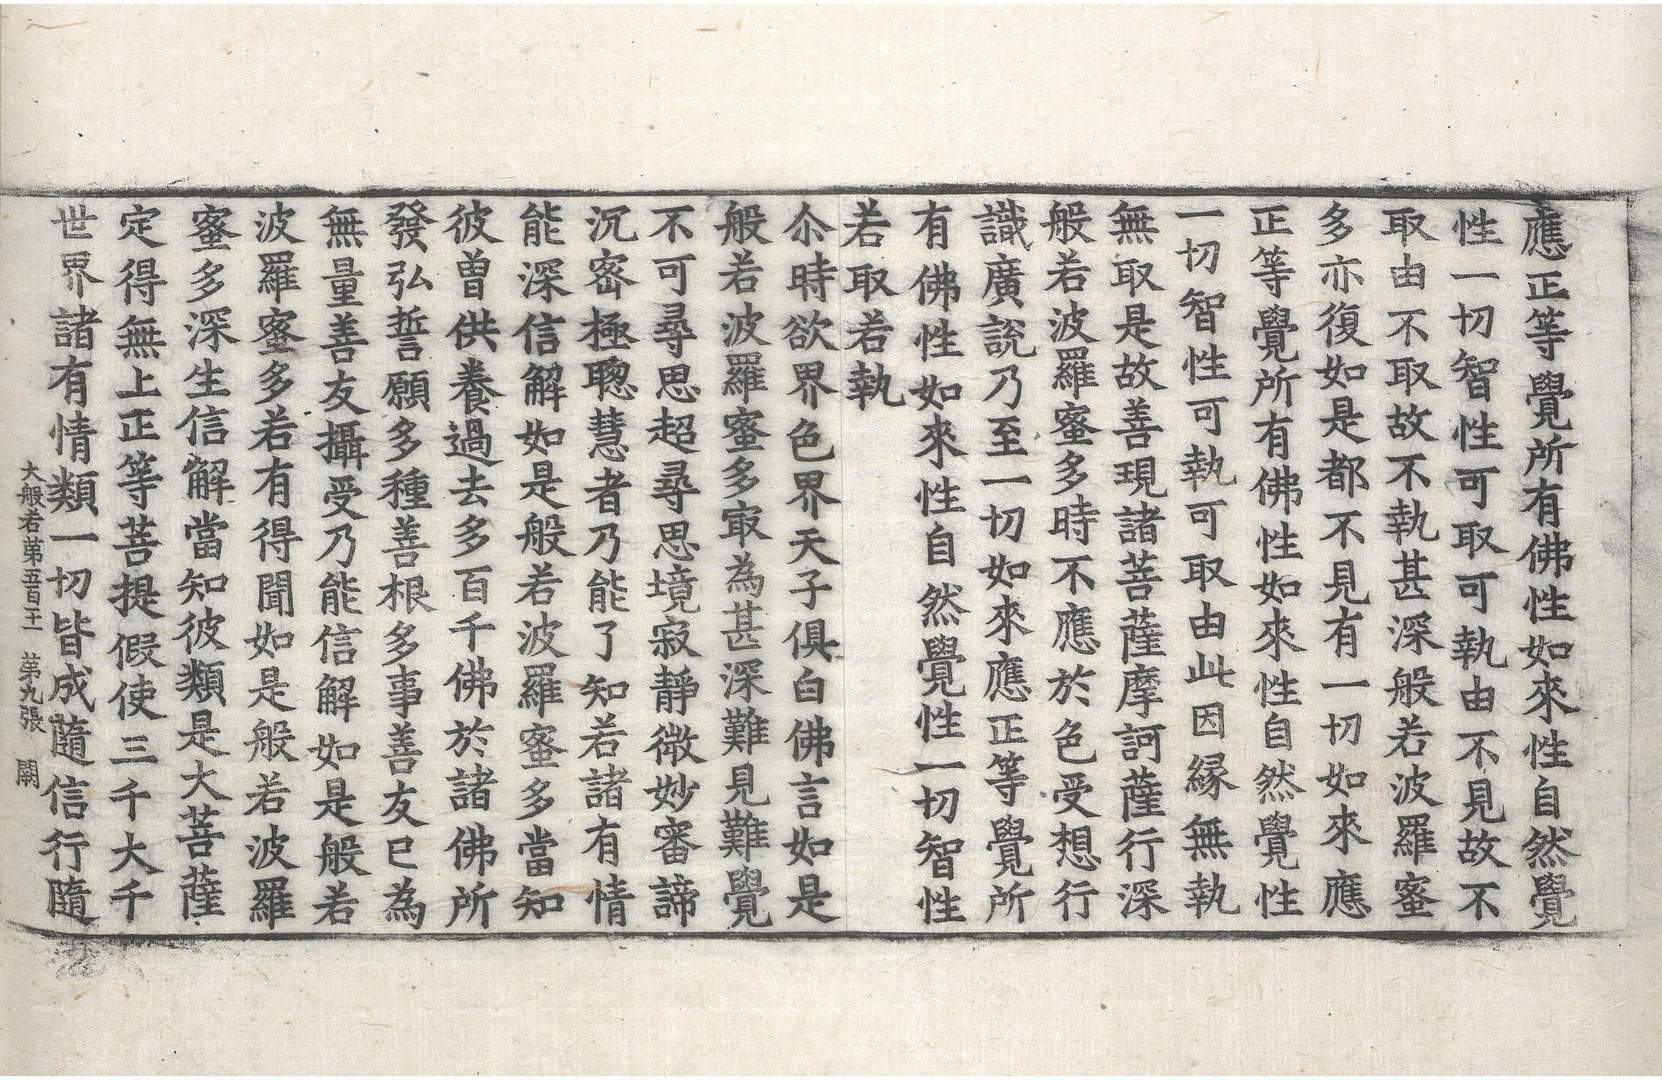 應正等覺所有佛性如來性自然覺
性一切智性可取可執由不見故不
取由不取故不執甚深般若波羅蜜
多亦復如是都不見有一切如來應
正等覺所有佛性如來性自然覺性
一切智性可執可取由此因縁無執
無取是故善現諸菩薩摩訶薩行深
般若波羅蜜多時不應於色受想行
識廣說乃至一切如來應正等覺所
有佛性如來性自然覺性一切智性
若取若執
尒時欲界色界天子俱白佛言如是
般若波羅蜜多㝡為甚深難見難覺
不可尋思超尋思境寂靜微妙審諦
沉密極聰慧者乃能了知若諸有情
能深信解如是般若波羅蜜多當知
彼曽供養過去多百千佛於諸佛所
發弘誓願多種善根多事善友已為
無量善友攝受乃能信解如是般若
波羅蜜多若有得聞如是般若波羅
蜜多深生信解當知彼類是大菩薩
定得無上正等菩提假使三千大千
世界諸有情類一切皆成隨信行隨
大般若第五百十一 第九張 闕